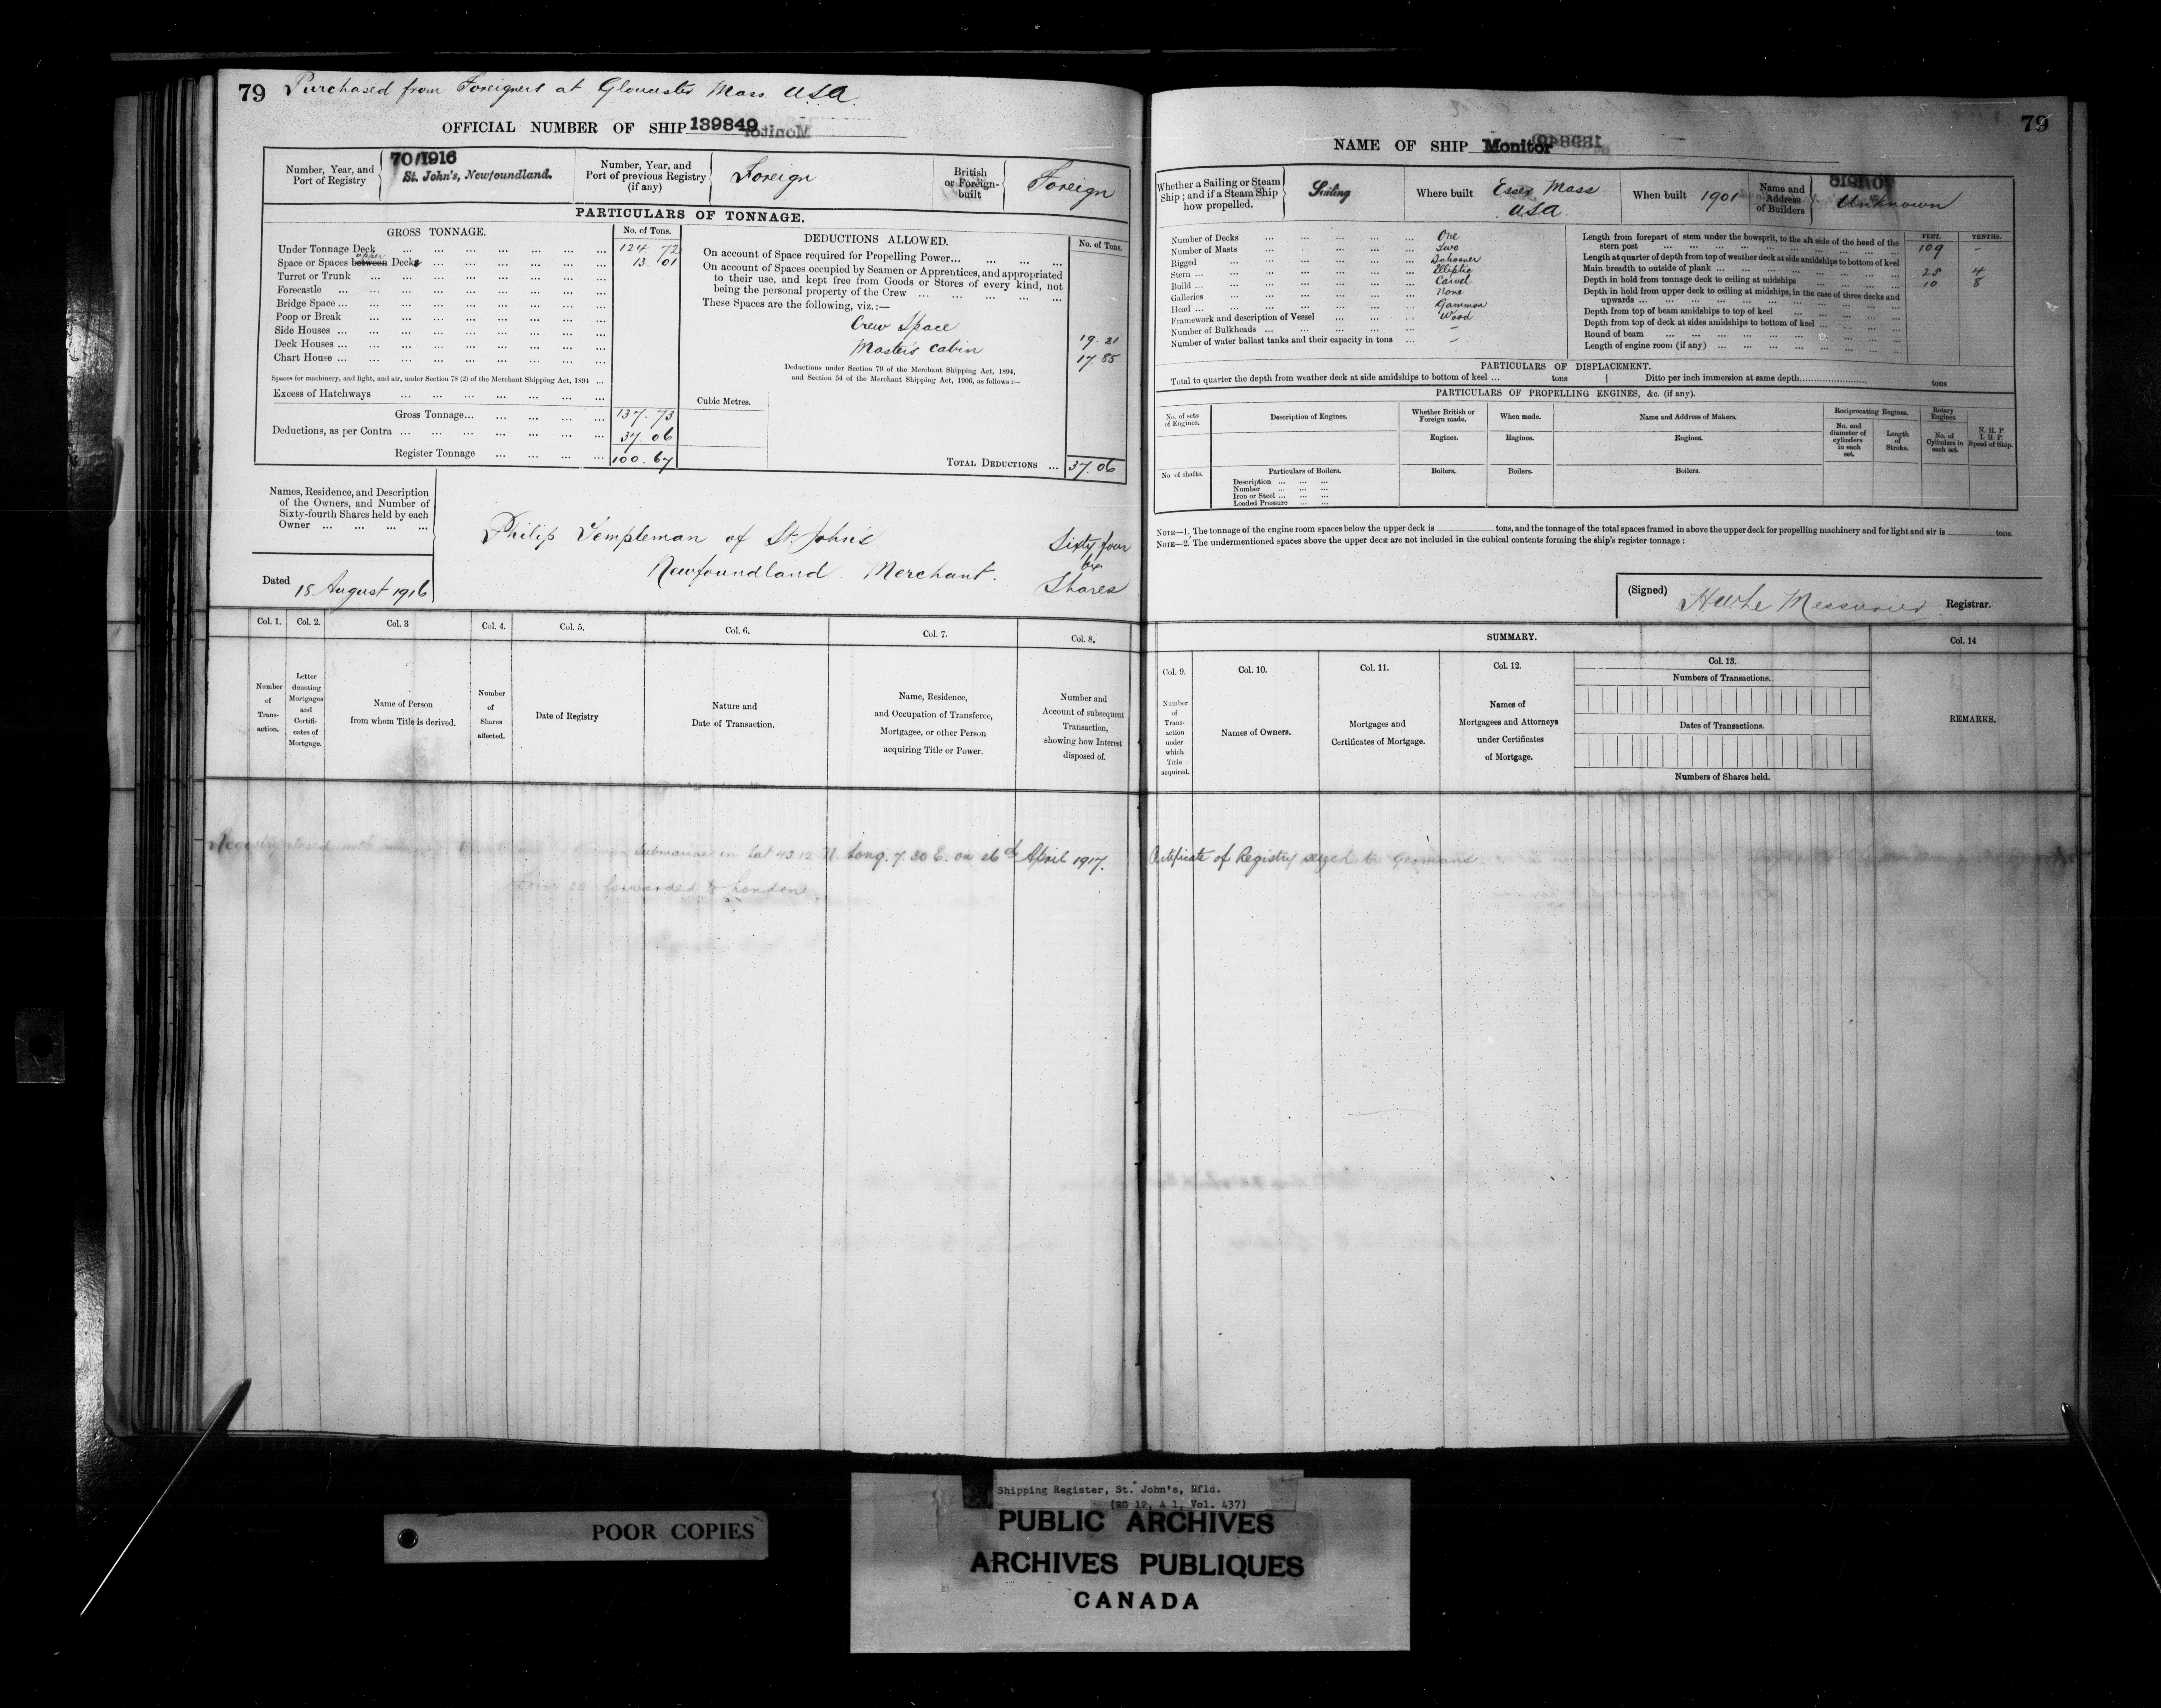 79 Purchased from Foreigners at Gloucester Mass. USA.
OFFICIAL NUMBER OF SHIP 139849
Number, Year, and Port of Registry
70/1916
St. John's, Newfoundland.
Number, Year, and Port of previous Registry (if any)
Foreign
British or Foreign-built
Foreign
PARTICULARS OF TONNAGE.
GROSS TONNAGE.
No. of Tons.
Under Tonnage Deck ... 124. 72
Space or Spaces between upper Decks ... 13. 01
Turret or Trunk ...
Forecastle ...
Bridge Space ...
Poop or Break ...
Side Houses ...
Deck Houses ...
Chart House ...
Spaces for machinery, and light, and air, under Section 78 (2) of the Merchant Shipping Act, 1894 ...
Excess of Hatchways ...
Gross Tonnage... 137. 73
Deductions, as per Contra ... 37. 06
Register Tonnage ... 100. 67
DEDUCTIONS ALLOWED.
No. of Tons.
On account of Space required for Propelling Power...
On account of Spaces occupied by Seamen or Apprentices, and appropriated
to their use, and kept free from Goods or Stores of every kind, not
being the personal property of the Crew ...
These Spaces are the following, viz.:—
Crew Space 19. 21
Master's Cabin 17. 85
Deductions under Section 79 of the Merchant Shipping Act, 1894,
and Section 54 of the Merchant Shipping Act, 1906, as follows:—
Cubic Metres.
TOTAL DEDUCTIONS ... 37. 06
Names, Residence, and Description
of the Owners, and Number of
Sixty-fourth Shares held by each
Owner ...
Philip Templeman of St. John's
Newfoundland Merchant.
Sixty four
Shares
Dated 18 August 1916
Col. 1.
Col. 2.
Col. 3
Col. 4.
Col. 5.
Col. 6.
Col. 7.
Col. 8.
Number of Transaction.
Letter denoting Mortgages and Certificates of Mortgage.
Name of Person from whom Title is derived.
Number of Shares affected.
Date of Registry
Nature and Date of Transaction.
Name, Residence, and Occupation of Transferee, Mortgagee, or other Person acquiring Title or Power.
Number and Account of subsequent Transaction, showing how Interest disposed of.
Registry closed
submarine in Lat 43.12 N. Long. 7.30 E. on 26th April 1917. Certificate of Registry seized by Germans.
forwarded to London
79
NAME OF SHIP Monitor
Whether a Sailing or Steam Ship; and if a Steam Ship how propelled.
Sailing
Where built
Essex Mass
USA.
When built 1901
Name and Address of Builders
Unknown
Number of Decks ... One
Number of Masts ... Two
Rigged ... Schooner
Stern ... Elliptic
Build ... Carvel
Galleries ... None
Head ... Gammon
Framework and description of Vessel ... Wood
Number of Bulkheads ... —
Number of water ballast tanks and their capacity in tons ... —
FEET. TENTHS.
Length from forepart of stem under the bowsprit, to the aft side of the head of the stern post ... 109 -
Length at quarter of depth from top of weather deck at side amidships to bottom of keel
Main breadth to outside of plank ... 25 4
Depth in hold from tonnage deck to ceiling at midships ... 10 8
Depth in hold from upper deck to ceiling at midships, in the case of three decks and upwards ...
Depth from top of beam amidships to top of keel ...
Depth from top of deck at sides amidships to bottom of keel ...
Round of beam ...
Length of engine room (if any) ...
PARTICULARS OF DISPLACEMENT.
Total to quarter the depth from weather deck at side amidships to bottom of keel ... tons
Ditto per inch immersion at same depth... tons
PARTICULARS OF PROPELLING ENGINES, &c. (if any).
No. of sets of Engines.
Description of Engines.
Whether British or Foreign made.
When made.
Name and Address of Makers.
Reciprocating Engines.
Rotary Engines
No. and diameter of cylinders in each set.
Length of Stroke.
No. of Cylinders in each set.
N. H. P
I. H. P.
Speed of Ship.
Engines.
Engines.
Engines.
No. of shafts.
Particulars of Boilers.
Boilers.
Boilers.
Boilers.
Description ...
Number ...
Iron or Steel ...
Loaded Pressure ...
NOTE—1. The tonnage of the engine room spaces below the upper deck is tons, and the tonnage of the total spaces framed in above the upper deck for propelling machinery and for light and air is tons.
NOTE—2. The undermentioned spaces above the upper deck are not included in the cubical contents forming the ship's register tonnage:
(Signed) H W Le Messurier Registrar.
SUMMARY.
Col. 14
Col. 9.
Col. 10.
Col. 11.
Col. 12.
Col. 13.
Number of Transaction under which Title acquired.
Names of Owners.
Mortgages and Certificates of Mortgage.
Names of Mortgagees and Attorneys under Certificates of Mortgage.
Numbers of Transactions.
Dates of Transactions.
Numbers of Shares held.
REMARKS.
POOR COPIES
Shipping Register, St. John's, Nfld.
(RG 12, A 1, Vol. 437)
PUBLIC ARCHIVES
ARCHIVES PUBLIQUES
CANADA